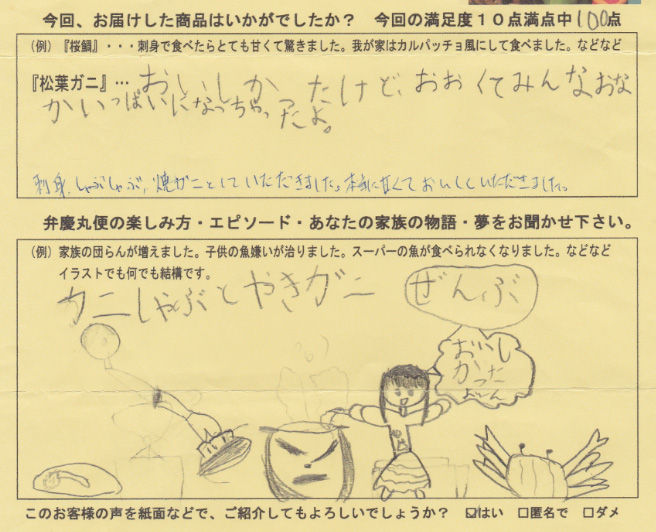 今回、お届けした商品はいかがでしたか？　今回の満足度１０点満点中100点
（例）『桜鯛』・・・刺身で食べたらとても甘くて驚きました。我が家はカルパッチョ風にして食べました。などなど
『松葉ガニ』… おいしかったけど、おおくてみんなおな
かいっぱいになっちゃったよ。
刺身、しゃぶしゃぶ、焼ガニとしていただきました。本当に甘くておいしくいただきました。
弁慶丸便の楽しみ方・エピソード・あなたの家族の物語・夢をお聞かせ下さい。
（例）家族の団らんが増えました。子供の魚嫌いが治りました。スーパーの魚が食べられなくなりました。などなど
イラストでも何でも結構です。
カニしゃぶとやきガニ　ぜんぶ
おいし
かった
このお客様の声を紙面などで、ご紹介してもよろしいでしょうか？　☑はい　□匿名で　□ダメ